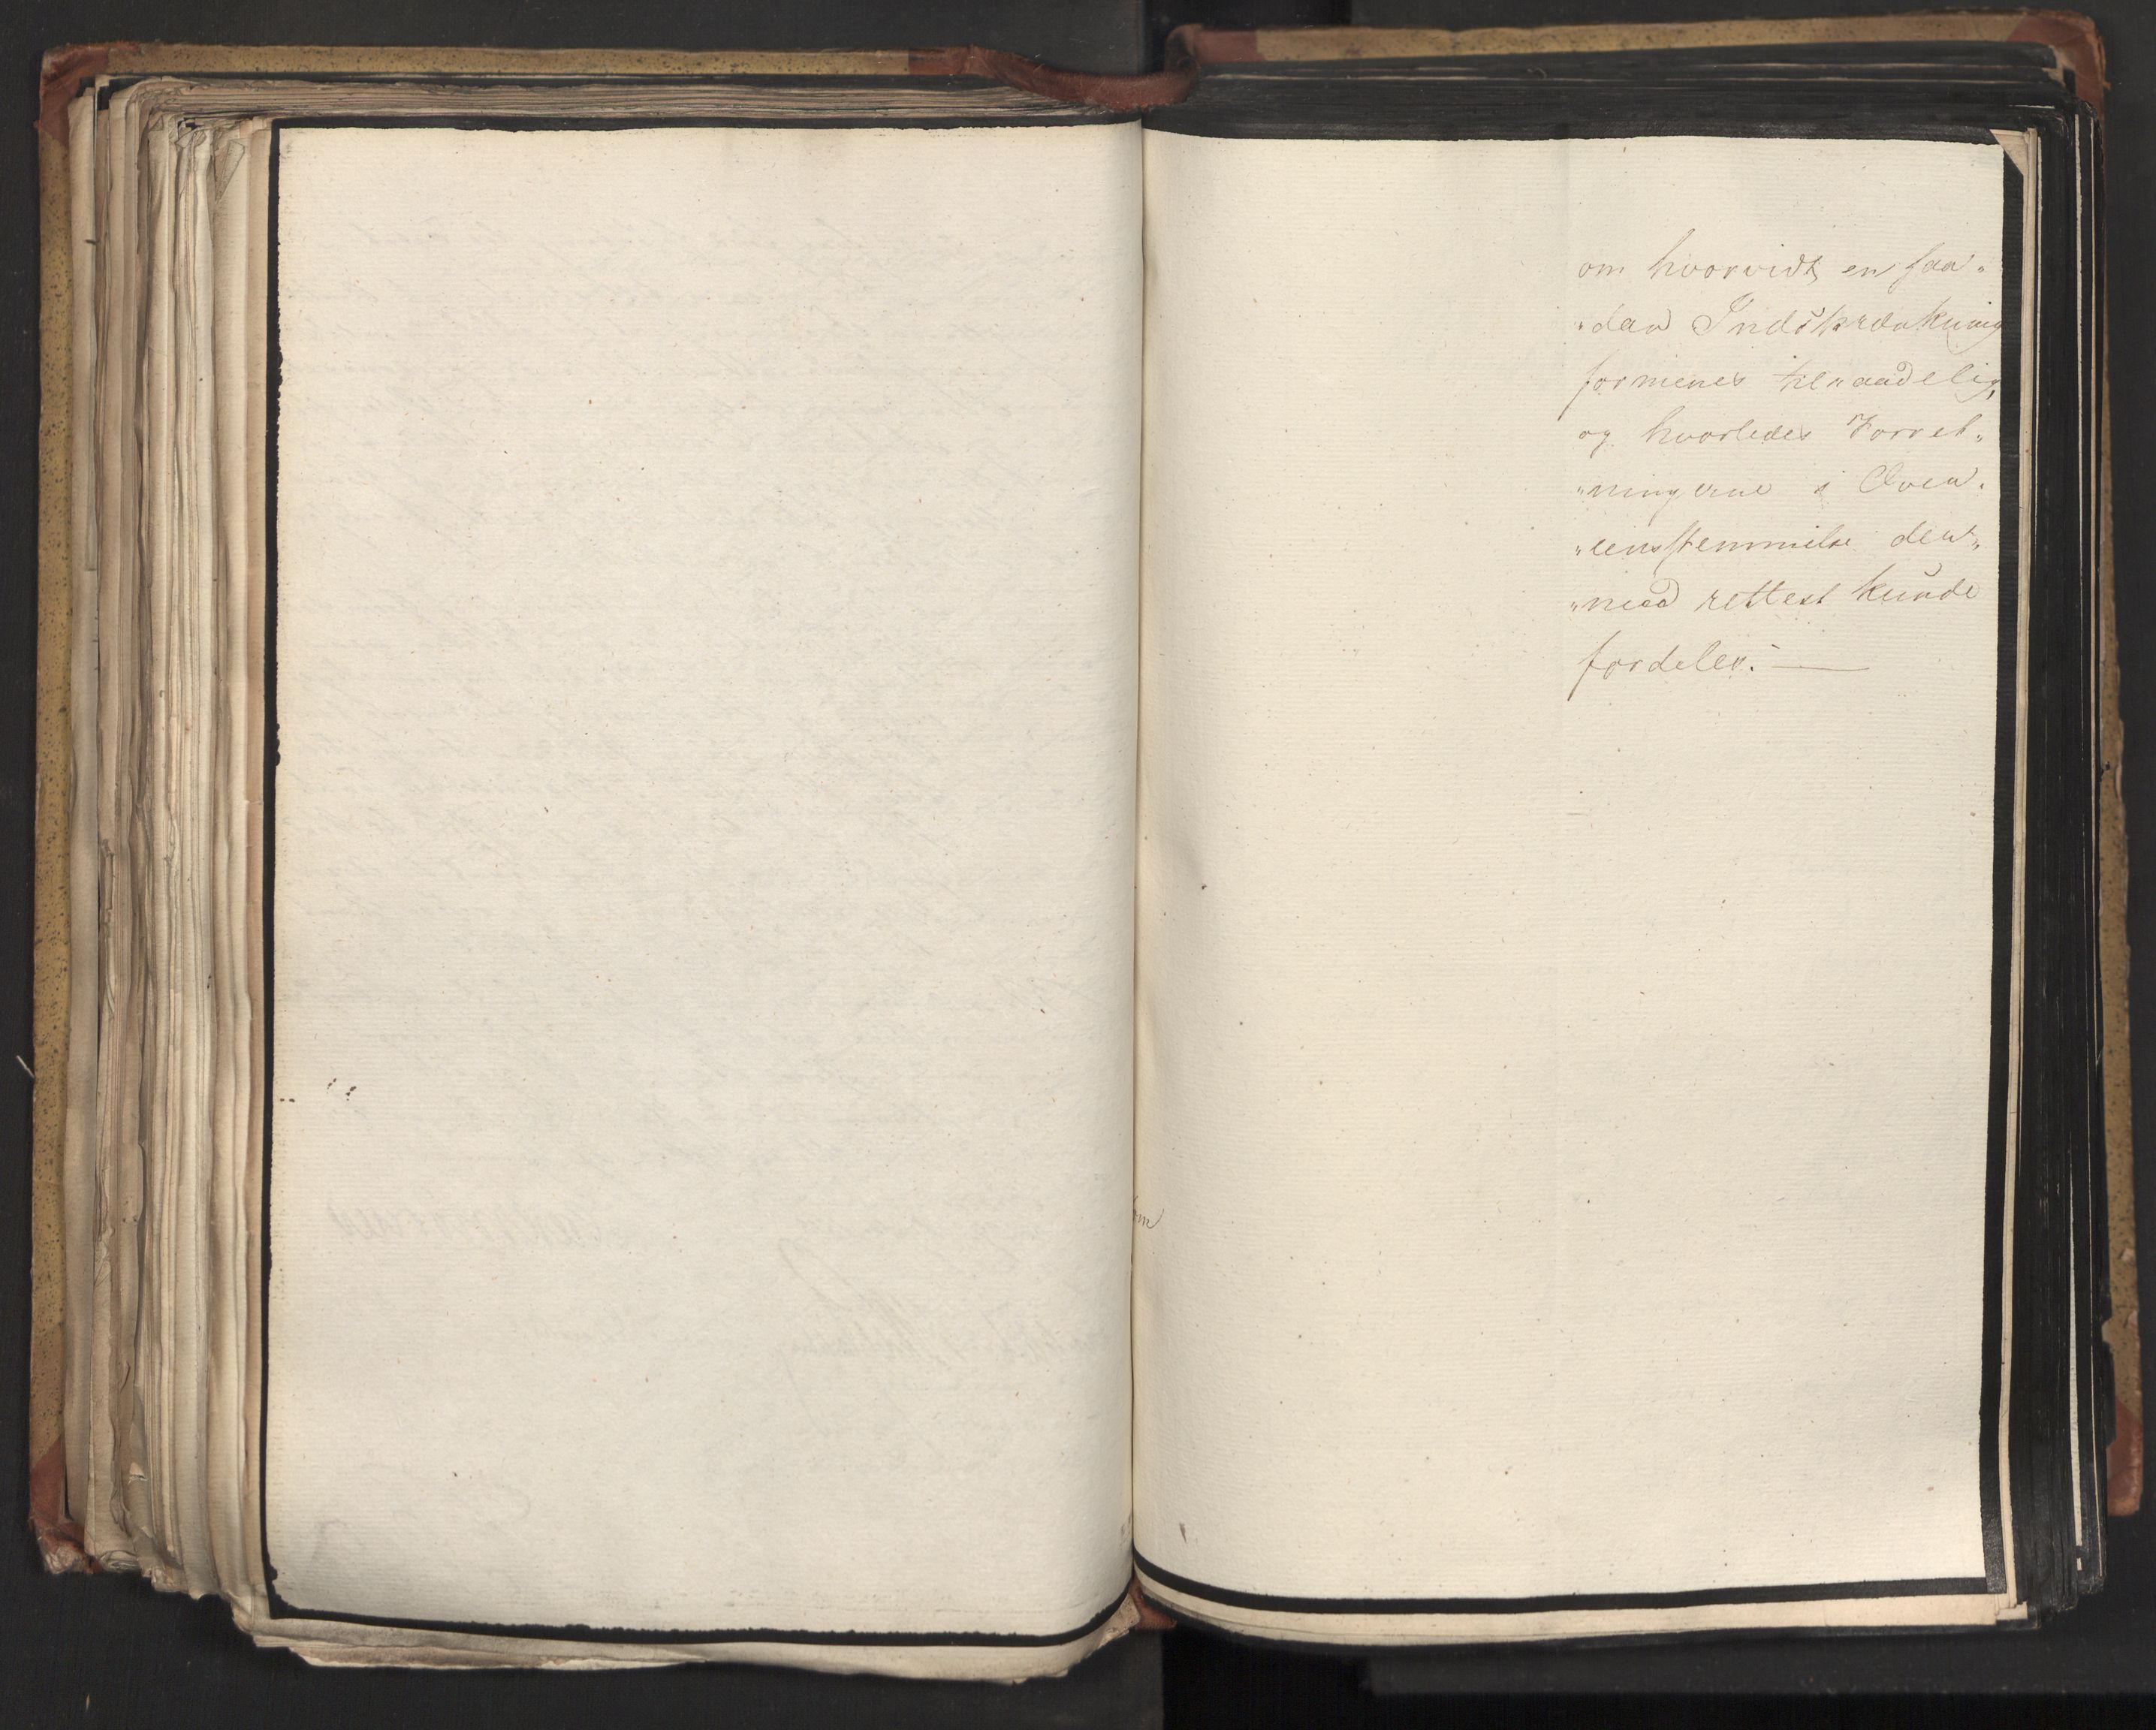 om hvorvidt en saa„
„dan Indskrænkning
formenes tilraadelig,
og hvorledes Forret„
„ningerne i Over„
„eensstemmelse der„
„med rettest kunde
fordeles. —